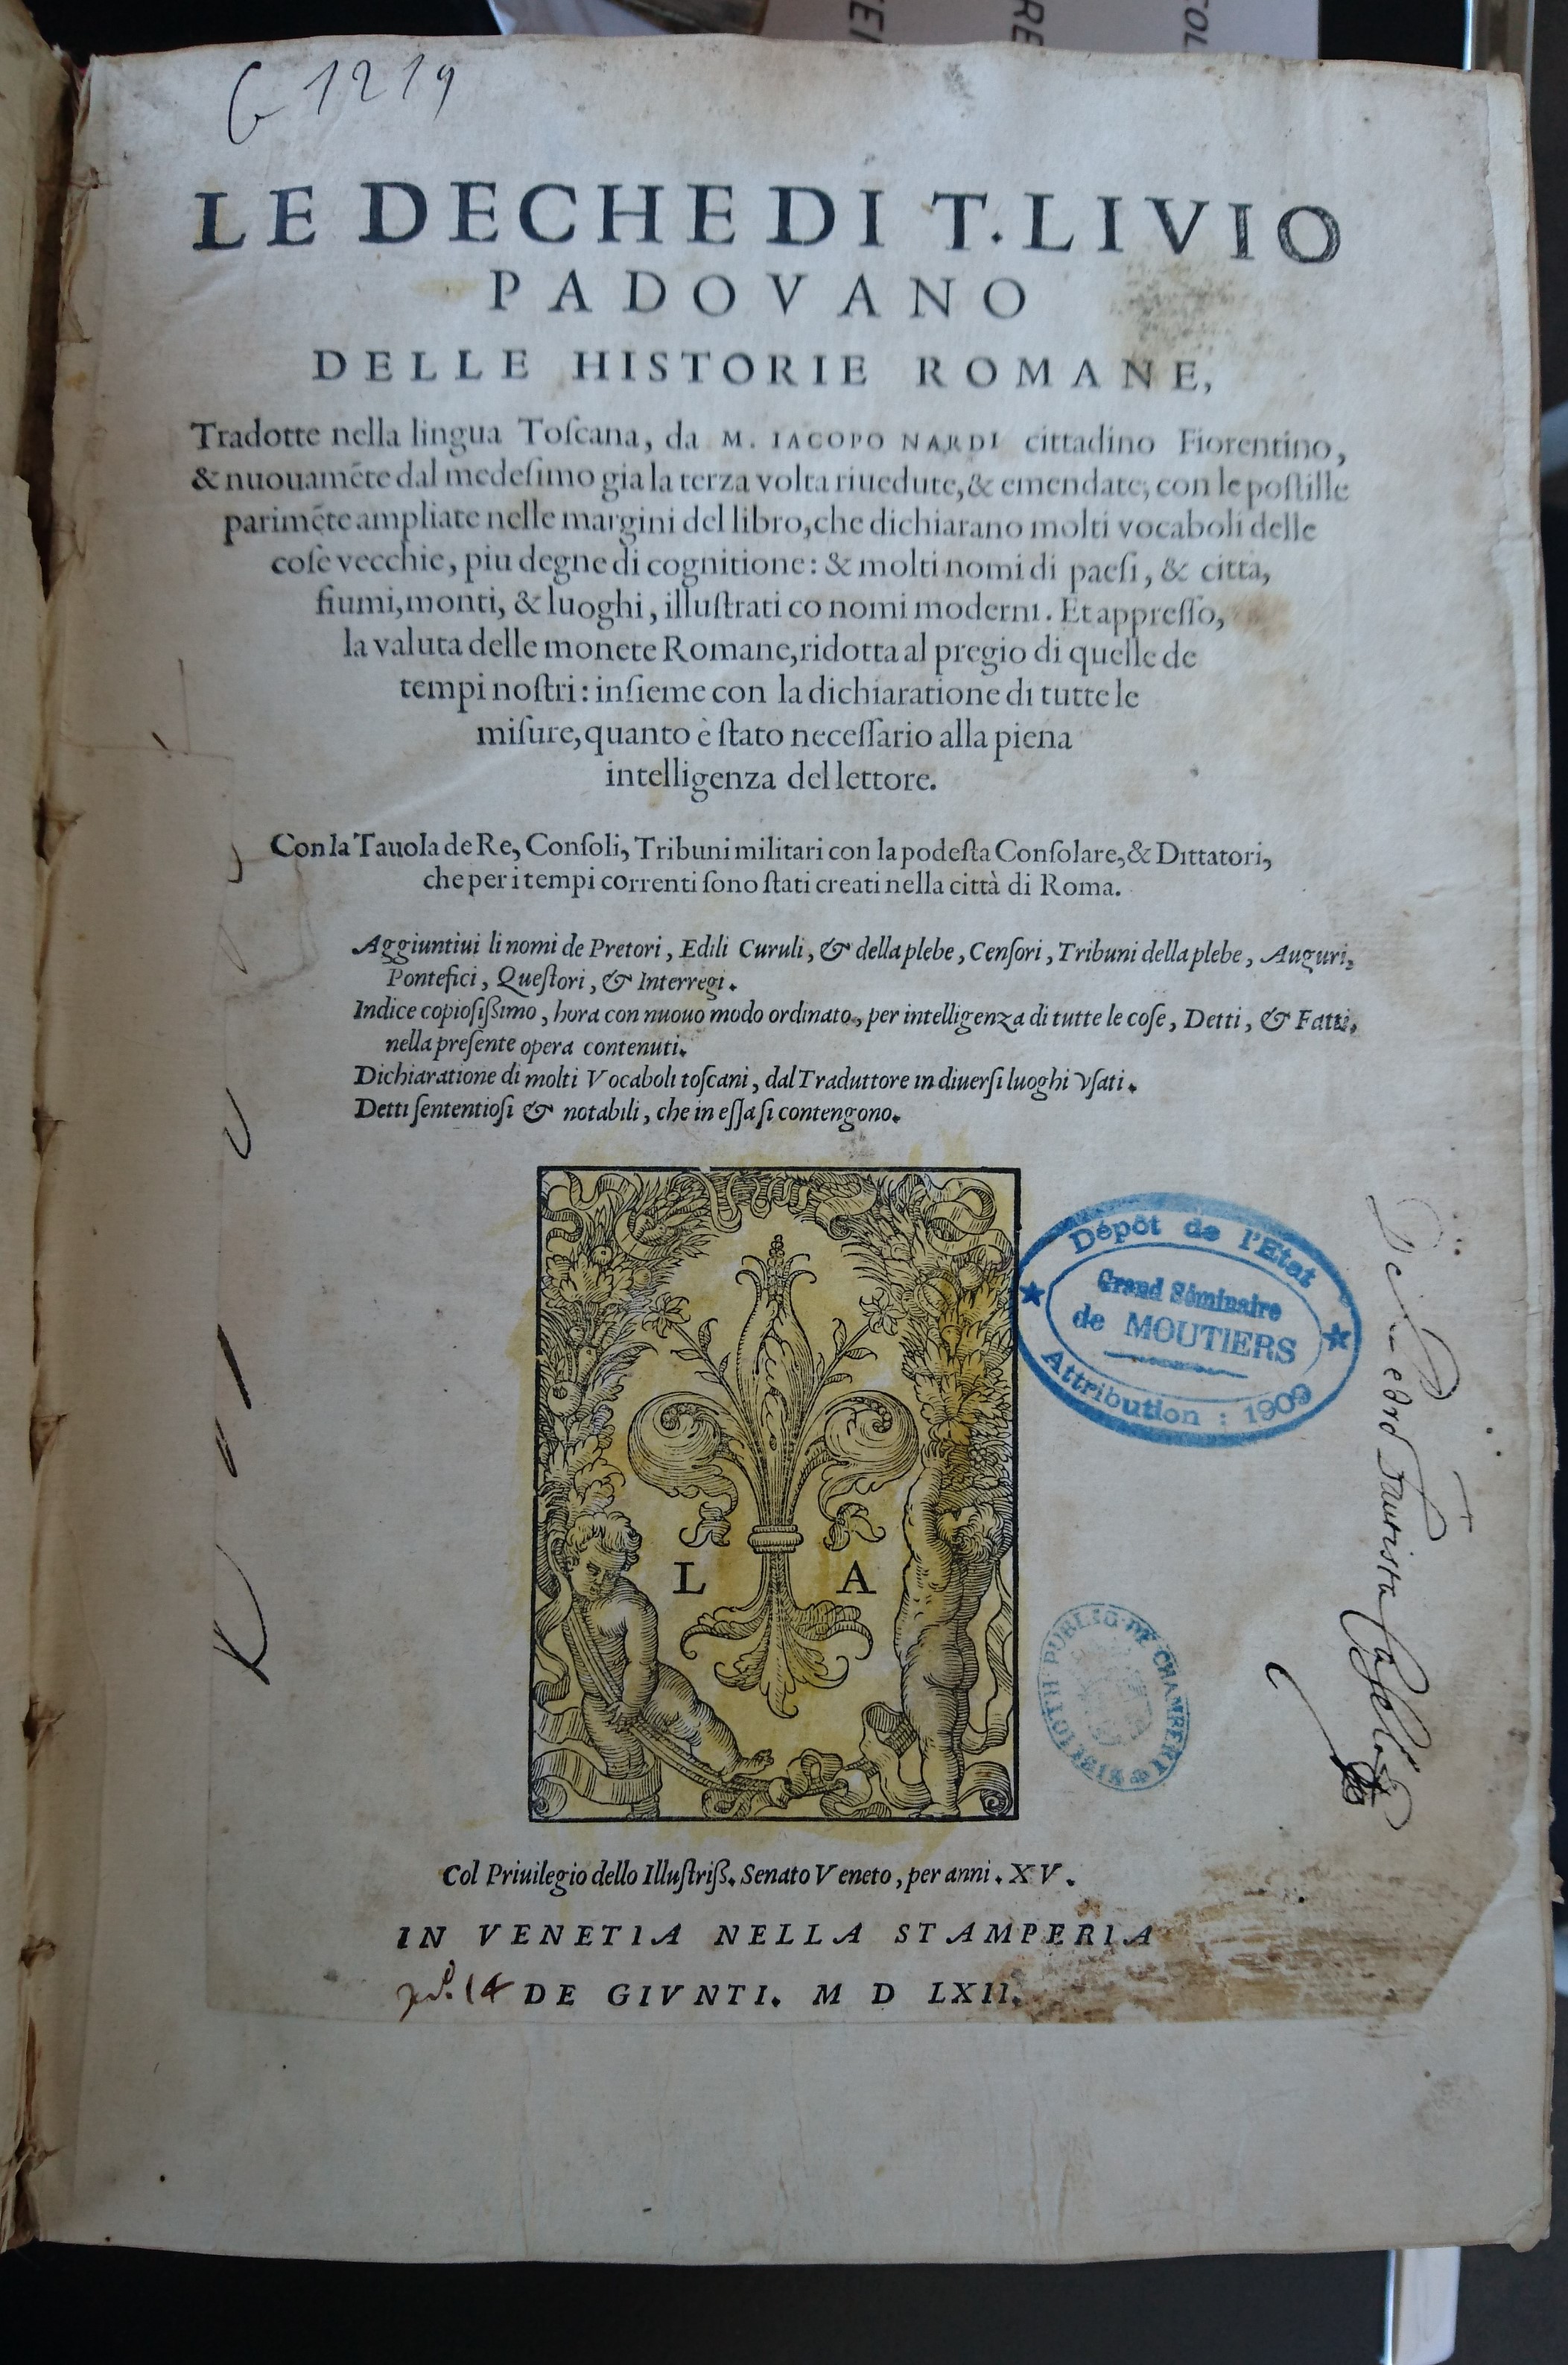 G 1219
LE DECHE DI T. LIVIO
PADOVANO
DELLE HISTORIE ROMANE,
Tradotte nella lingua Toſcana, da M. IACOPO NARDI cittadino Fiorentino,
& nuouamẽte dal medeſimo gia la terza volta riuedute, & emendate, con le poſtille
parimẽte ampliate nelle margini del libro, che dichiarano molti vocaboli delle
coſe vecchie, piu degne di cognitione: & molti nomi di paeſi, & citta,
fiumi, monti, & luoghi, illuſtrati co nomi moderni. Et appreſſo,
la valuta delle monete Romane, ridotta al pregio di quelle de
tempi noſtri: inſieme con la dichiaratione di tutte le
miſure, quanto è ſtato neceſſario alla piena
intelligenza del lettore.
Con la Tauola de Re, Conſoli, Tribuni militari con la podeſta Conſolare, & Dittatori,
che per i tempi correnti ſono ſtati creati nella città di Roma.
Aggiuntiui li nomi de Pretori, Edili Curuli, & della plebe, Cenſori, Tribuni della plebe, Auguri,
Pontefici, Queſtori, & Interregi.
Indice copioſiſſimo, hora con nuouo modo ordinato, per intelligenza di tutte le coſe, Detti, & Fatti,
nella preſente opera contenuti.
Dichiaratione di molti Vocaboli toſcani, dal Traduttore in diuerſi luoghi vſati.
Detti ſententioſi & notabili, che in eſſa ſi contengono.
Dépôt de l'Etat
Grand Séminaire
de MOUTIERS
Attribution : 1909
L A
BIBLIOTH PUBLIQ DE CHAMBERY
Col Priuilegio dello Illuſtriß. Senato Veneto, per anni. XV.
IN VENETIA NELLA STAMPERIA
DE GIVNTI. M D LXII.